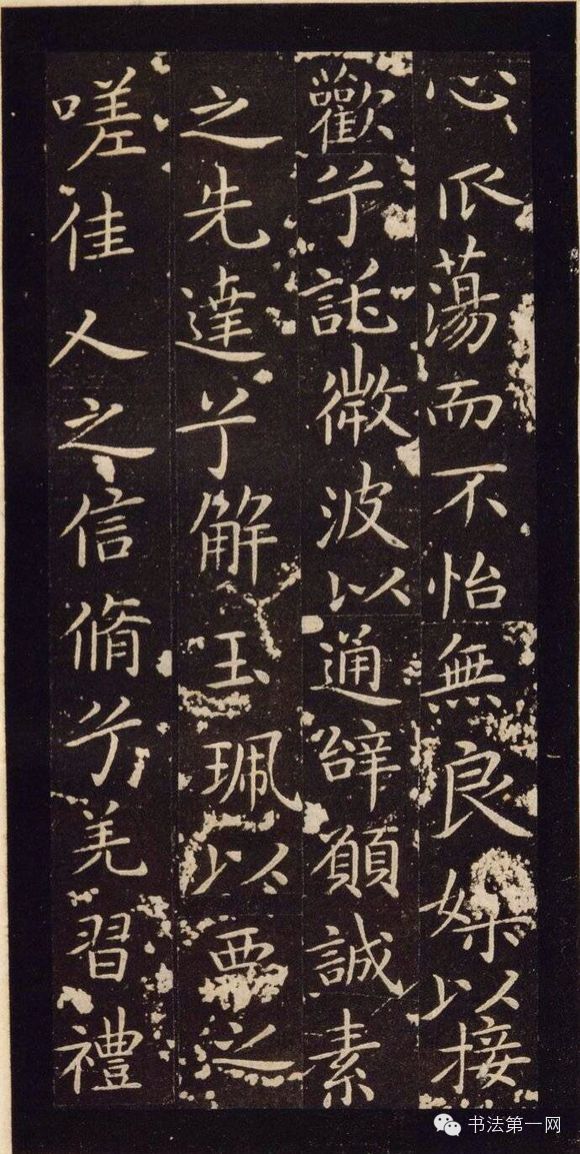 心爪蕩而不怡無良媒以接
歡兮託微波以通辭願誠素
之先達兮解玉珮以要之
嗟佳人之信脩兮羌習禮
书法第一网